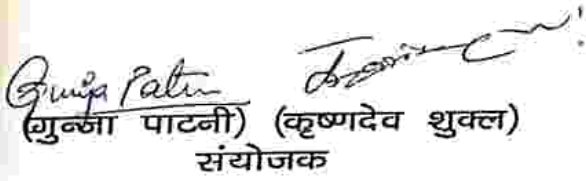 Gunja Patni
(गुन्जा पाटनी) (कृष्णदेव शुक्ल)
संयोजक